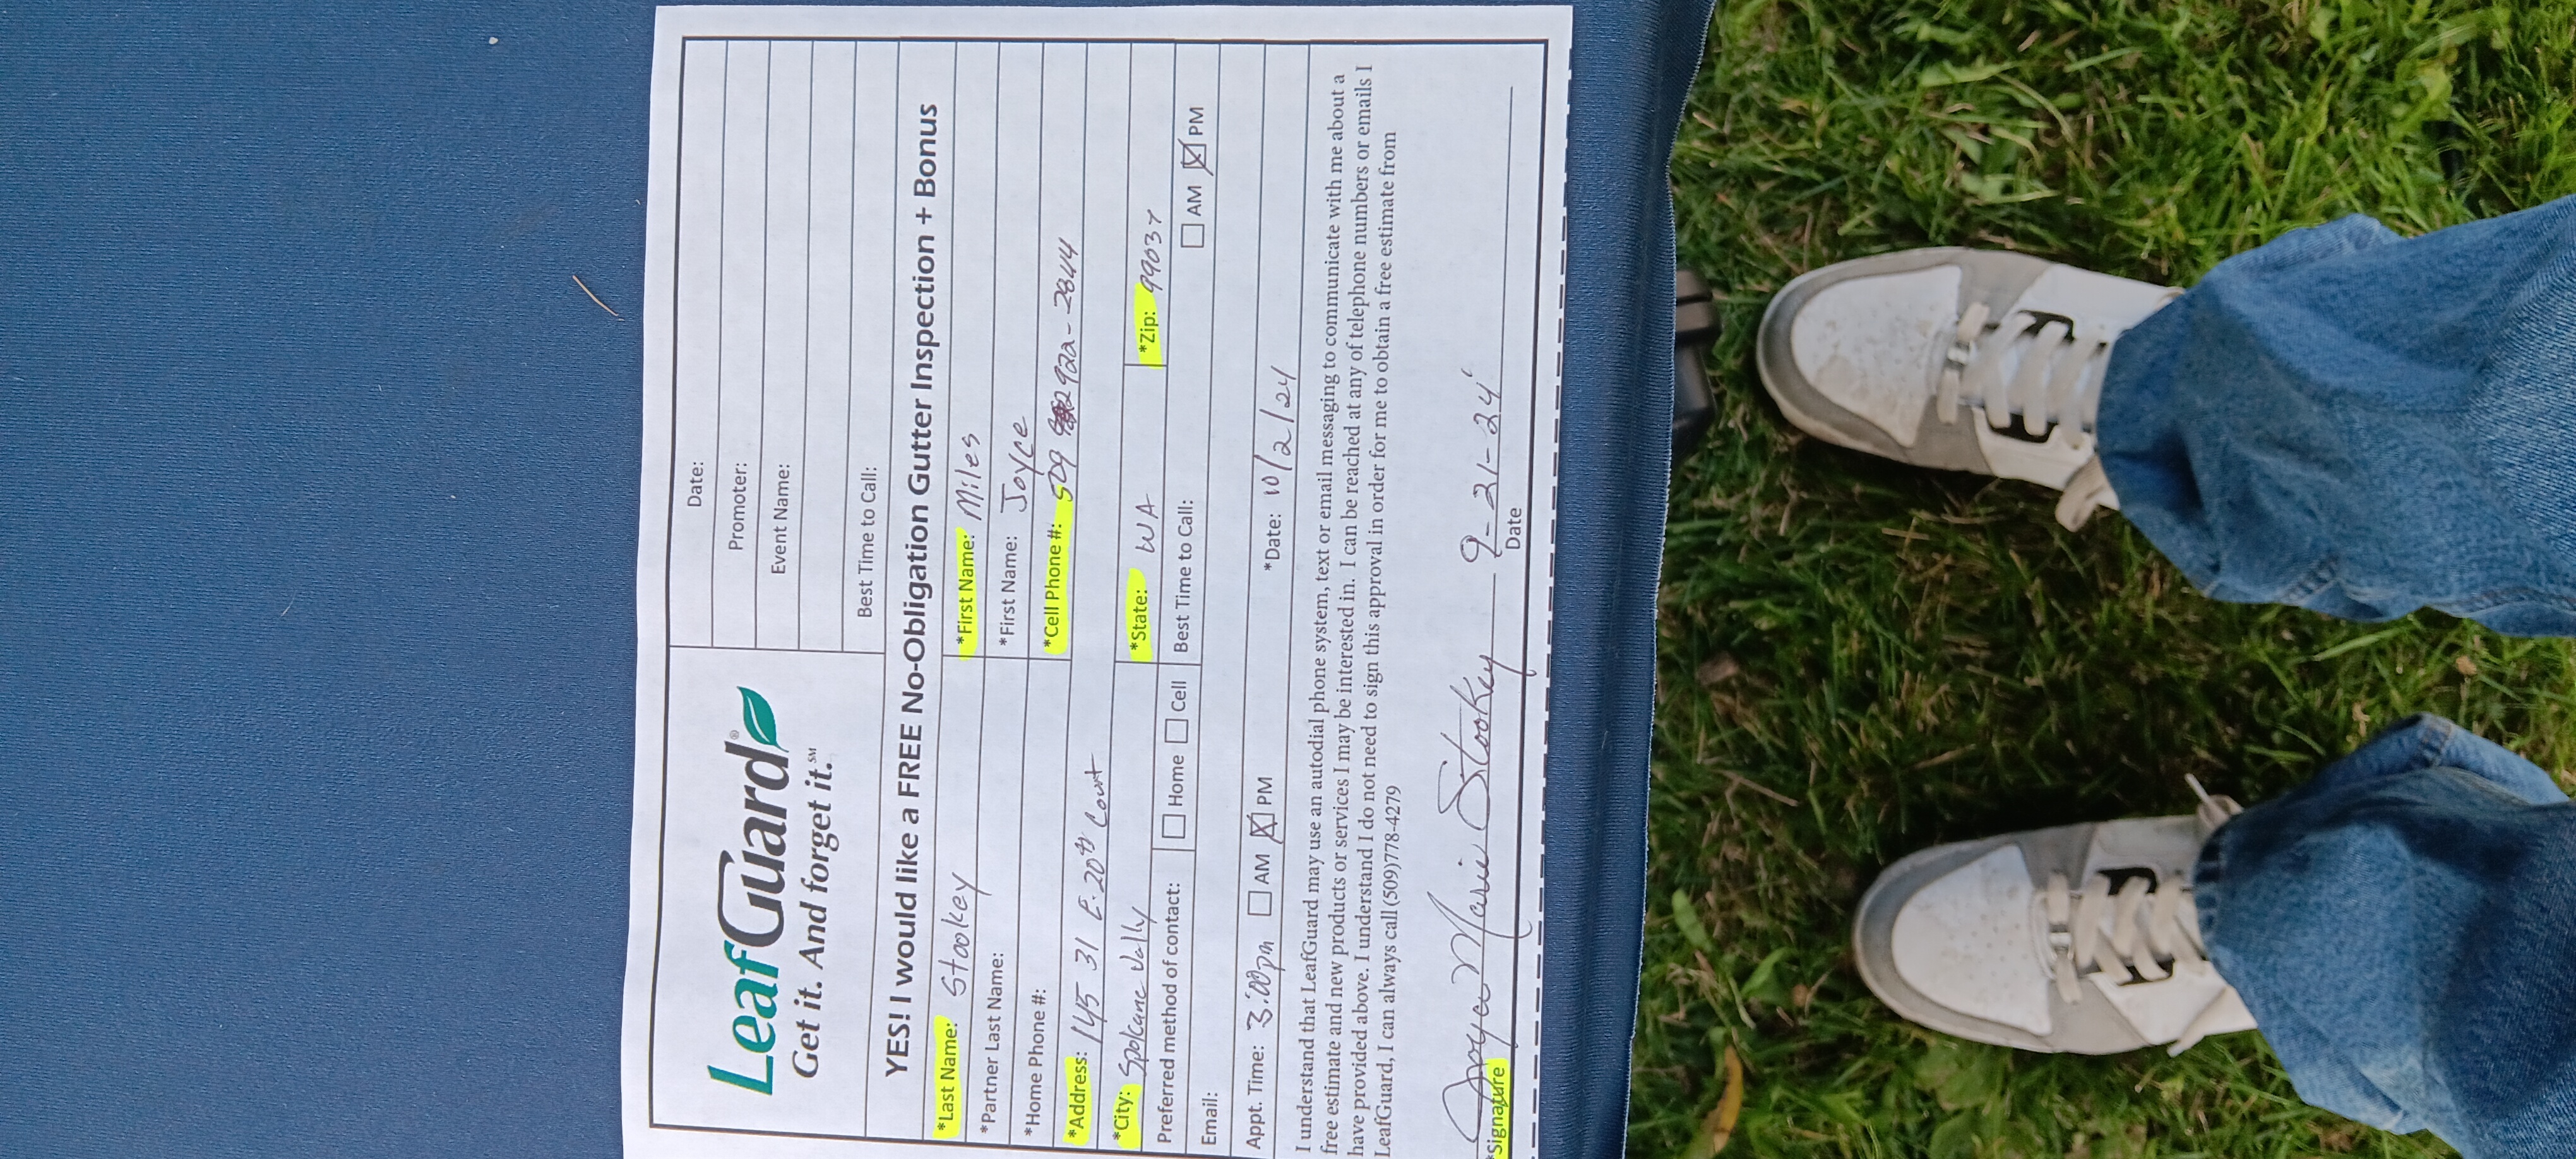 LeafGuard®
Get it. And forget it.℠
Date:
Promoter:
Event Name:
Best Time to Call:
YES! I would like a FREE No-Obligation Gutter Inspection + Bonus
*Last Name: Stookey *First Name: Miles
*Partner Last Name: *First Name: Joyce
*Home Phone #: *Cell Phone #: 509 922-2844
*Address: 145 31 E. 20th Court
*City: Spokane Vally *State: WA *Zip: 99037
Preferred method of contact: Home Cell Best Time to Call: AM PM
Email:
Appt. Time: 3:00pm AM PM *Date: 10/2/24
I understand that LeafGuard may use an autodial phone system, text or email messaging to communicate with me about a
free estimate and new products or services I may be interested in. I can be reached at any of telephone numbers or emails I
have provided above. I understand I do not need to sign this approval in order for me to obtain a free estimate from
LeafGuard, I can always call (509)778-4279
Joyce Marie Stookey 9-21-24
*Signature Date